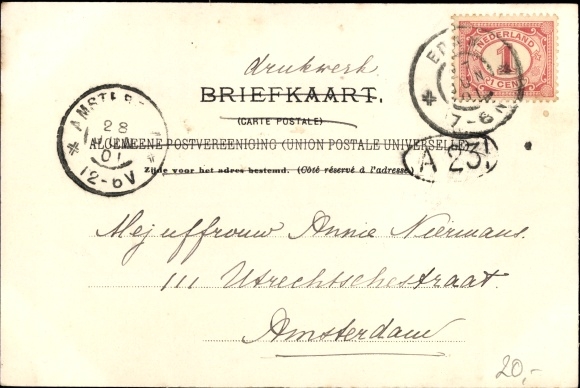 drukwerk.
NEDERLAND
1
CENT
BRIEFKAART.
(CARTE POSTALE)
ALGEMEENE POSTVEREENIGING (UNION POSTALE UNIVERSELLE)
Zijde voor het adres bestemd. (Côté réservé à l'adresse)
28
01
12-6V
7-8N
A 23
Mejuffrouw Annie Niermans.
111 Utrechtschestraat.
Amsterdam
20,-